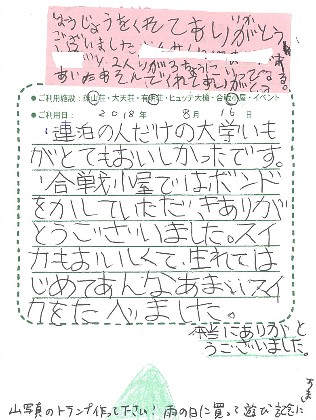 しょうじょうをくれてありがとう
ございました
2人が
あいたあそんでくれて
●ご利用施設：燕山荘・大天荘・有明荘・ヒュッテ大槍・合戦小屋・イベント
●ご利用日：2018年 8月 16日
連泊の人だけの大学いも
がとてもおいしかったです。
合戦小屋ではボンド
をかしていただきありが
とうございました。スイ
カもおいしくて、生れては
じめてあんなあまいスイ
カをたべました。
本当にありがと
うございました。
山写真のトランプ作って下さい！雨の日に買って遊ぶ 記念に